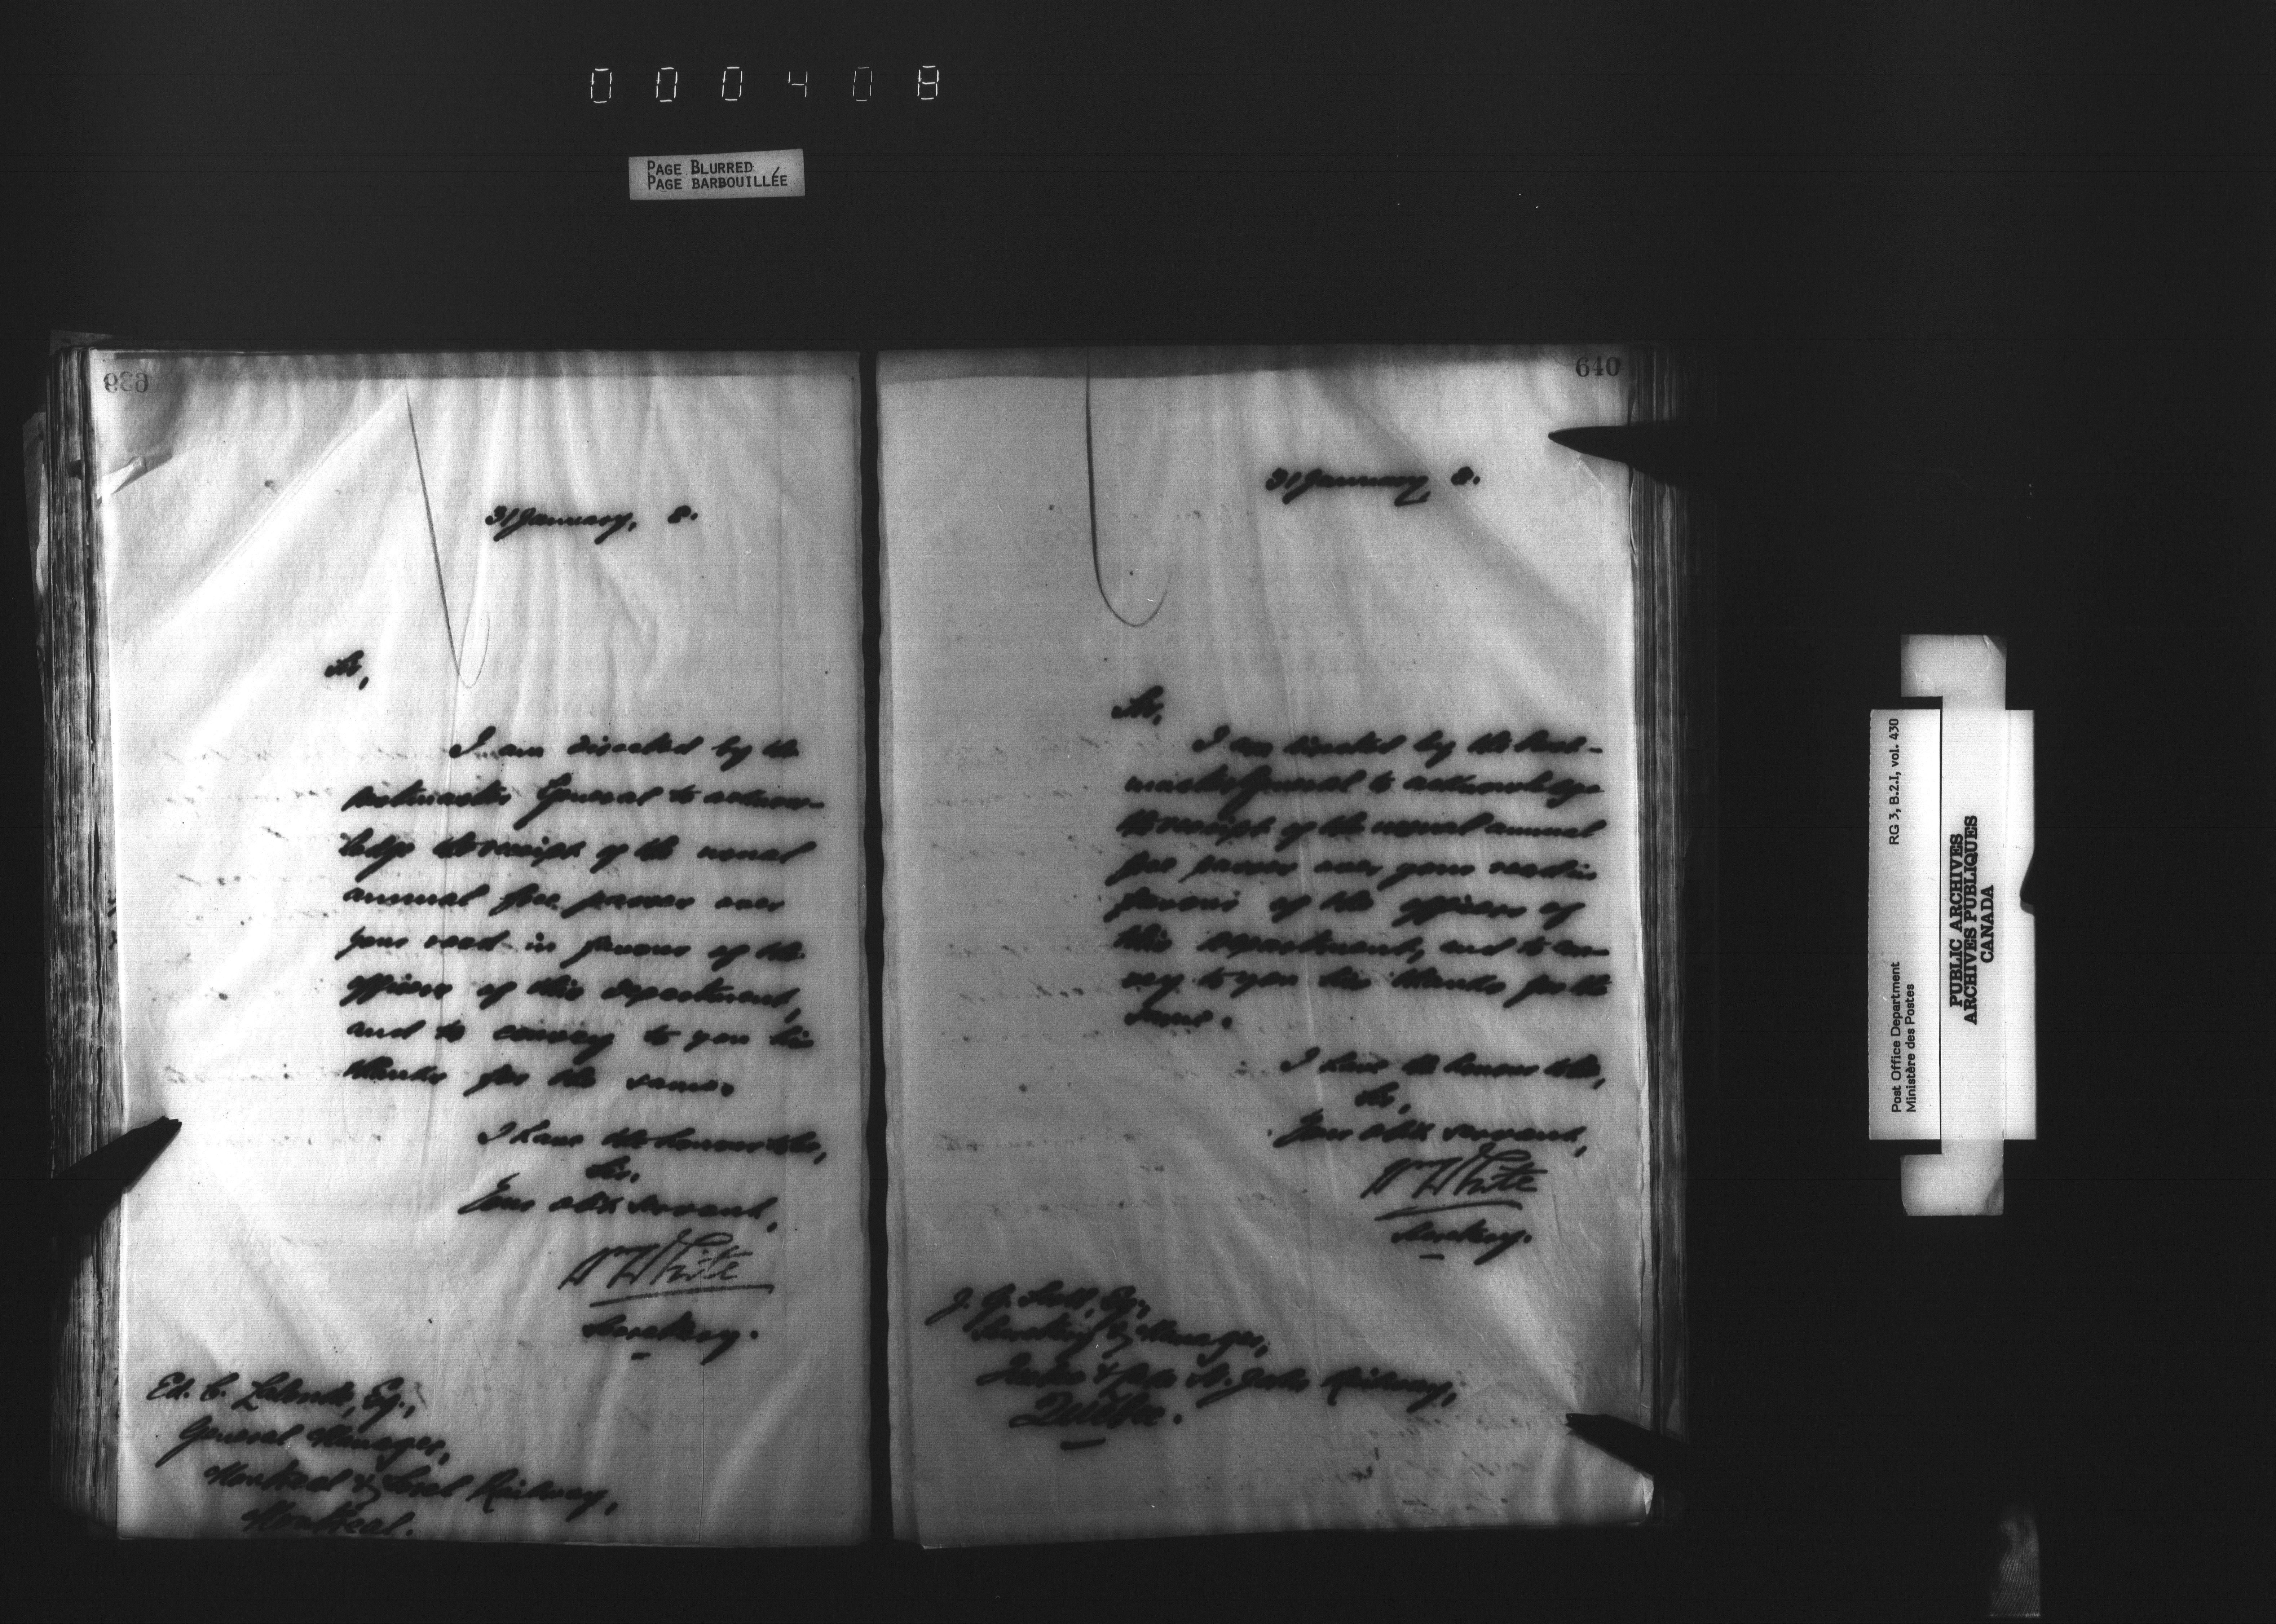 000408
PAGE BLURRED
PAGE BARBOUILLÉE
639
31 January, 8.
Sir,
I am directed by the
Postmaster General to acknow-
ledge the receipt of the usual
annual free passes over
your road in favour of the
officers of this department,
and to convey to you his
thanks for the same.
I have the honour to be,
Sir,
Your obdt servant,
W White
Secretary.
Ed. C. Lalonde, Esq.,
General Manager,
Montreal & Sorel Railway,
Montreal.
640
31 January, 8.
Sir,
I am directed by the Post-
master General to acknowledge
the receipt of the usual annual
free passes over your road in
favour of the officers of
this department, and to con-
vey to you his thanks for the
same.
I have the honour to be,
Sir,
Your obdt servant,
W White
Secretary.
J. G. Scott, Esq.,
Secretary & Manager,
Quebec & Lake St. John Railway,
Quebec.
Post Office Department
Ministère des Postes
RG 3, B.2.I, vol. 430
PUBLIC ARCHIVES
ARCHIVES PUBLIQUES
CANADA